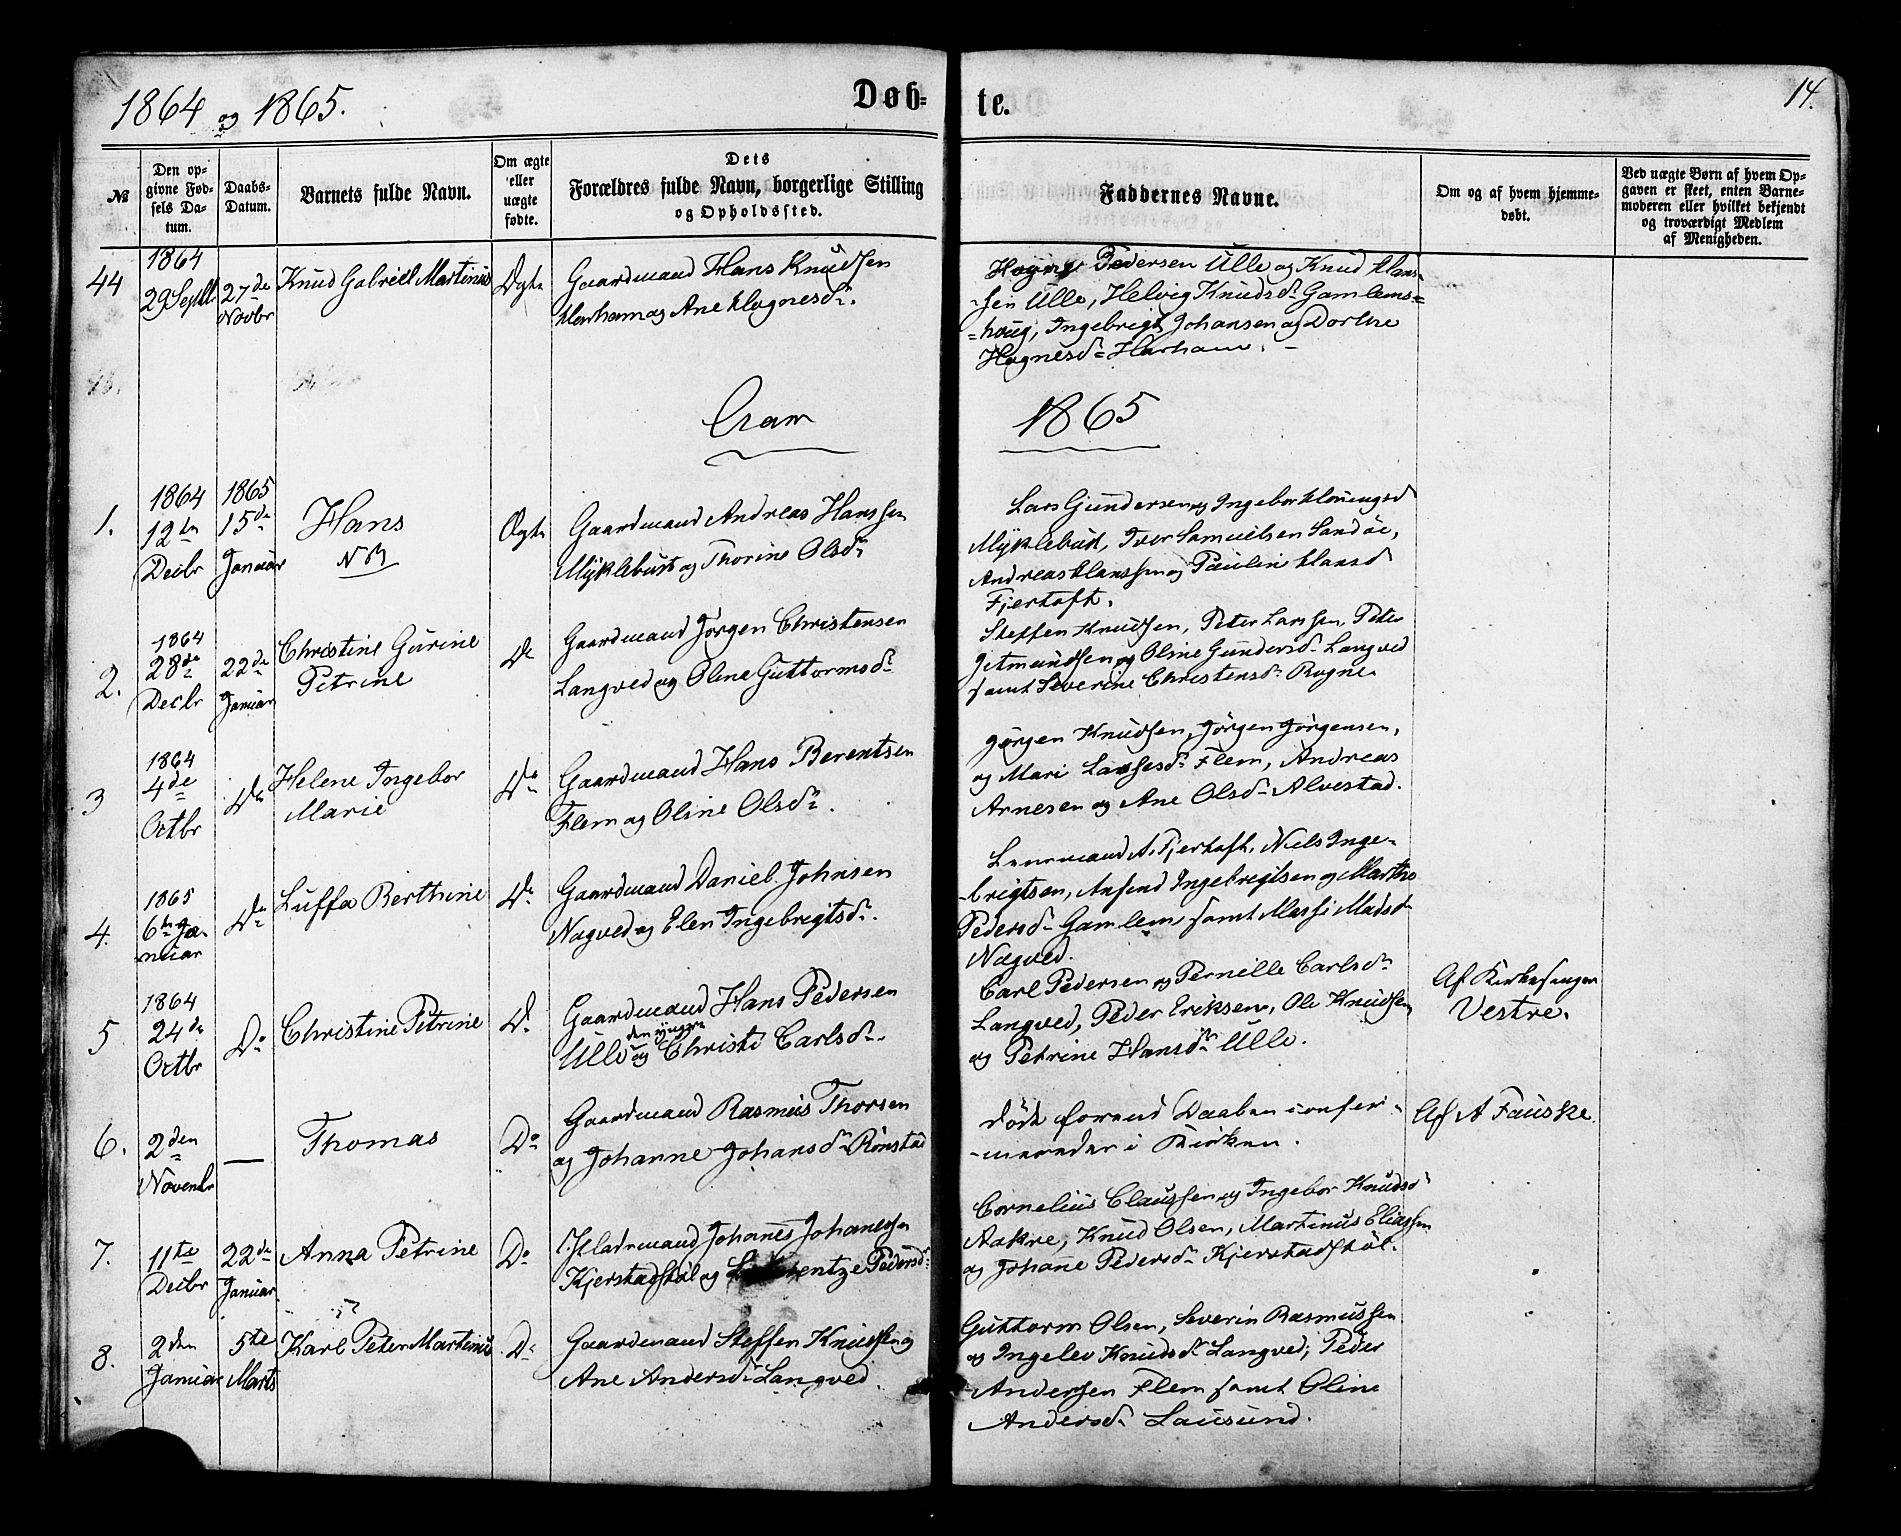 1864 og 1865.
Døb-
te.
14.
№
Den op-
givne Fød-
sels Da-
tum.
Daabs-
Datum.
Barnets fulde Navn.
Om ægte
eller
uægte
fødte.
Dets
Forældres fulde Navn, borgerlige Stilling
og Opholdssted.
Faddernes Navne.
Om og af hvem hjemme-
døbt.
Ved uægte Børn af hvem Op-
gaven er skeet, enten Barne-
moderen eller hvilket bekjendt
og troværdigt Medlem
af Menigheden.
44
1864
29 Septbr
27de
Novbr
Knud Gabriel Martinus
Ægte
Gaardmand Hans Knudsen
Harham og Ane Hognesdr.
Pedersen Ulle og Knud Hans-
-sen Ulle, Helvig Knudsdr Gamlems-
=houg, Ingebrigt Johansen og Dorthe
Hognesdr Harham. -
Aar
1865
1.
1864
12te
Decbr
1865
15de
Januar
Hans
NB
Ægte
Gaardmand Andreas Hanssen
Myklebust og Thorine Olsdr
Lars Gundersen og Ingebor
Myklebust, Iver Samuelsen Sandøe,
Andreas Hanssen og Pauline Hansd
Fjertoft.
2.
1864
28de
Decbr
22de
Januar
Christine Gurine
Petrine
Do
Gaardmand Jørgen Christensen
Langved og Oline Guttormsdr
Steffen Knudsen, Peter Larsen, Peter
Jetmundsen og Oline Gundersdr Langved
samt Severine Christensdr Rogne
3
1864
4de
Octbr
Do
Helene Ingebor
Marie
Do
Gaardmand Hans Berentsen
Flem og Oline Olsdr.
Jørgen Knudsen, Jørgen Jørgensen,
og Mari Lassesdr Flem, Andreas
Arnesen og Ane Olsdr Alvestad.
4.
1865
6te Ja-
nuar
Do
Luffa Berthine
Do
Gaardmand Daniel Johnsen
Nogved og Elen Ingebrigtsdr.
Lensmand A. Fjertoft, Niels Inge-
-brigtsen, Ansend Ingebrigtsen og Marthe
Pedersdr Gamlem samt Massi Madsdr
Nogved.
5
1864
24de
Octbr
Do
Christine Petrine
Do
Gaardmand Hans Pedersen
den yngre
Ulle og Christi Carlsdr.
Carl Pedersen og Pernille Carlsdr
Langved, Peder Eriksen, Ole Knudsen
og Petrine Hansdr Ulle.
Af Kirkesanger
Vestre.
6.
2den
Novembr
—
Thomas
Do
Gaardmand Rasmus Thorsen
og Johanne Johansdr Rønstad
død forend Daaben confir-
-merades i Kirken.
Af A Fauske.
7.
11te
Decbr
22de
Januar
Anna Petrine
Do
Pladsmand Johanes Johanessen
Kjerstadstøl og Pedersdr
Cornelius Claussen og Ingebor Knudsdr
Aakre, Knud Olsen, Martinus Eliassen
og Johane Pedersdr Kjerstadstøl.
8.
2den
Januar
5te
Marts
Karl Peter Martinus
Do
Gaardmand Steffen Knudsen og
Ane Andersdr Langved.
Guttorm Olsen, Severin Rasmussen
og Ingelev Knudsdr Langved, Peder
Andersen Flem samt Oline
Andersdr Lausund.